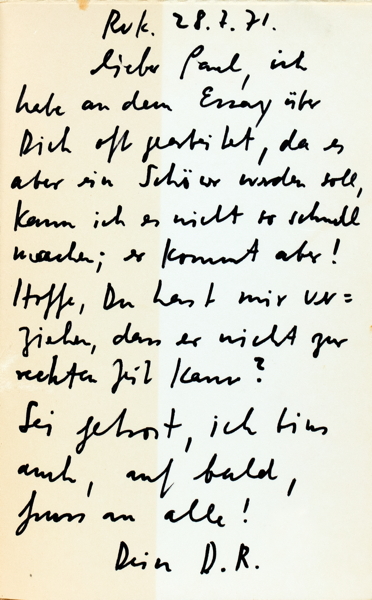 Rvk. 28.7.71.
Lieber Paul, ich
habe an dem Essay über
Dich oft gearbeitet, da es
aber ein Schöner werden soll,
kann ich es nicht so schnell
machen; er kommt aber!
Hoffe, Du hast mir ver=
ziehen, dass er nicht zur
rechten Zeit kam?
Sei getrost, ich bins
auch, auf bald,
Gruss an alle!
Dein D.R.